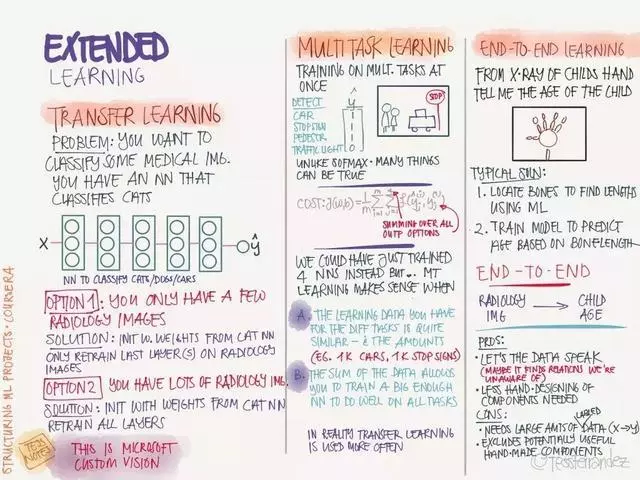 EXTENDED
LEARNING
TRANSFER LEARNING
PROBLEM: YOU WANT TO
CLASSIFY SOME MEDICAL IMG.
YOU HAVE AN NN THAT
CLASSIFIES CATS
X
ŷ
NN TO CLASSIFY CATS/DOGS/CARS
OPTION 1: YOU ONLY HAVE A FEW
RADIOLOGY IMAGES
SOLUTION: INIT W. WEIGHTS FROM CAT NN
ONLY RETRAIN LAST LAYER(S) ON RADIOLOGY
IMAGES
OPTION 2 YOU HAVE LOTS OF RADIOLOGY IMG.
SOLUTION: INIT WITH WEIGHTS FROM CAT NN
RETRAIN ALL LAYERS
THIS IS MICROSOFT
CUSTOM VISION
TESS
NOTES
STRUCTURING ML PROJECTS · COURSERA
MULTITASK LEARNING
TRAINING ON MULT. TASKS AT
ONCE
DETECT
ŷ
CAR
STOP SIGN
PEDESTR
TRAFFIC LIGHT
STOP
UNLIKE SOFMAX · MANY THINGS
CAN BE TRUE
COST:
SUMMING OVER ALL
OUTP OPTIONS
WE COULD HAVE JUST TRAINED
4 NNS INSTEAD BUT... MT
LEARNING MAKES SENSE WHEN
A. THE LEARNING DATA YOU HAVE
FOR THE DIFF TASKS IS QUITE
SIMILAR - & THE AMOUNTS
(EG. 1K CARS, 1K STOP SIGNS)
B. THE SUM OF THE DATA ALLOWS
YOU TO TRAIN A BIG ENOUGH
NN TO DO WELL ON ALL TASKS
IN REALITY TRANSFER LEARNING
IS USED MORE OFTEN
END-TO-END LEARNING
FROM X-RAY OF CHILDS HAND
TELL ME THE AGE OF THE CHILD
TYPICAL SOLN:
1. LOCATE BONES TO FIND LENGTHS
USING ML
2. TRAIN MODEL TO PREDICT
AGE BASED ON BONELENGTH
END-TO-END
RADIOLOGY IMG → CHILD AGE
PROS:
• LET'S THE DATA SPEAK
(MAYBE IT FINDS RELATIONS WE'RE
UNAWARE OF)
• LESS HAND-DESIGNING OF
COMPONENTS NEEDED
CONS:
• NEEDS LARGE AMTS OF LABLED DATA (X→y)
• EXCLUDES POTENTIALLY USEFUL
HAND-MADE COMPONENTS
©Tessferrandez